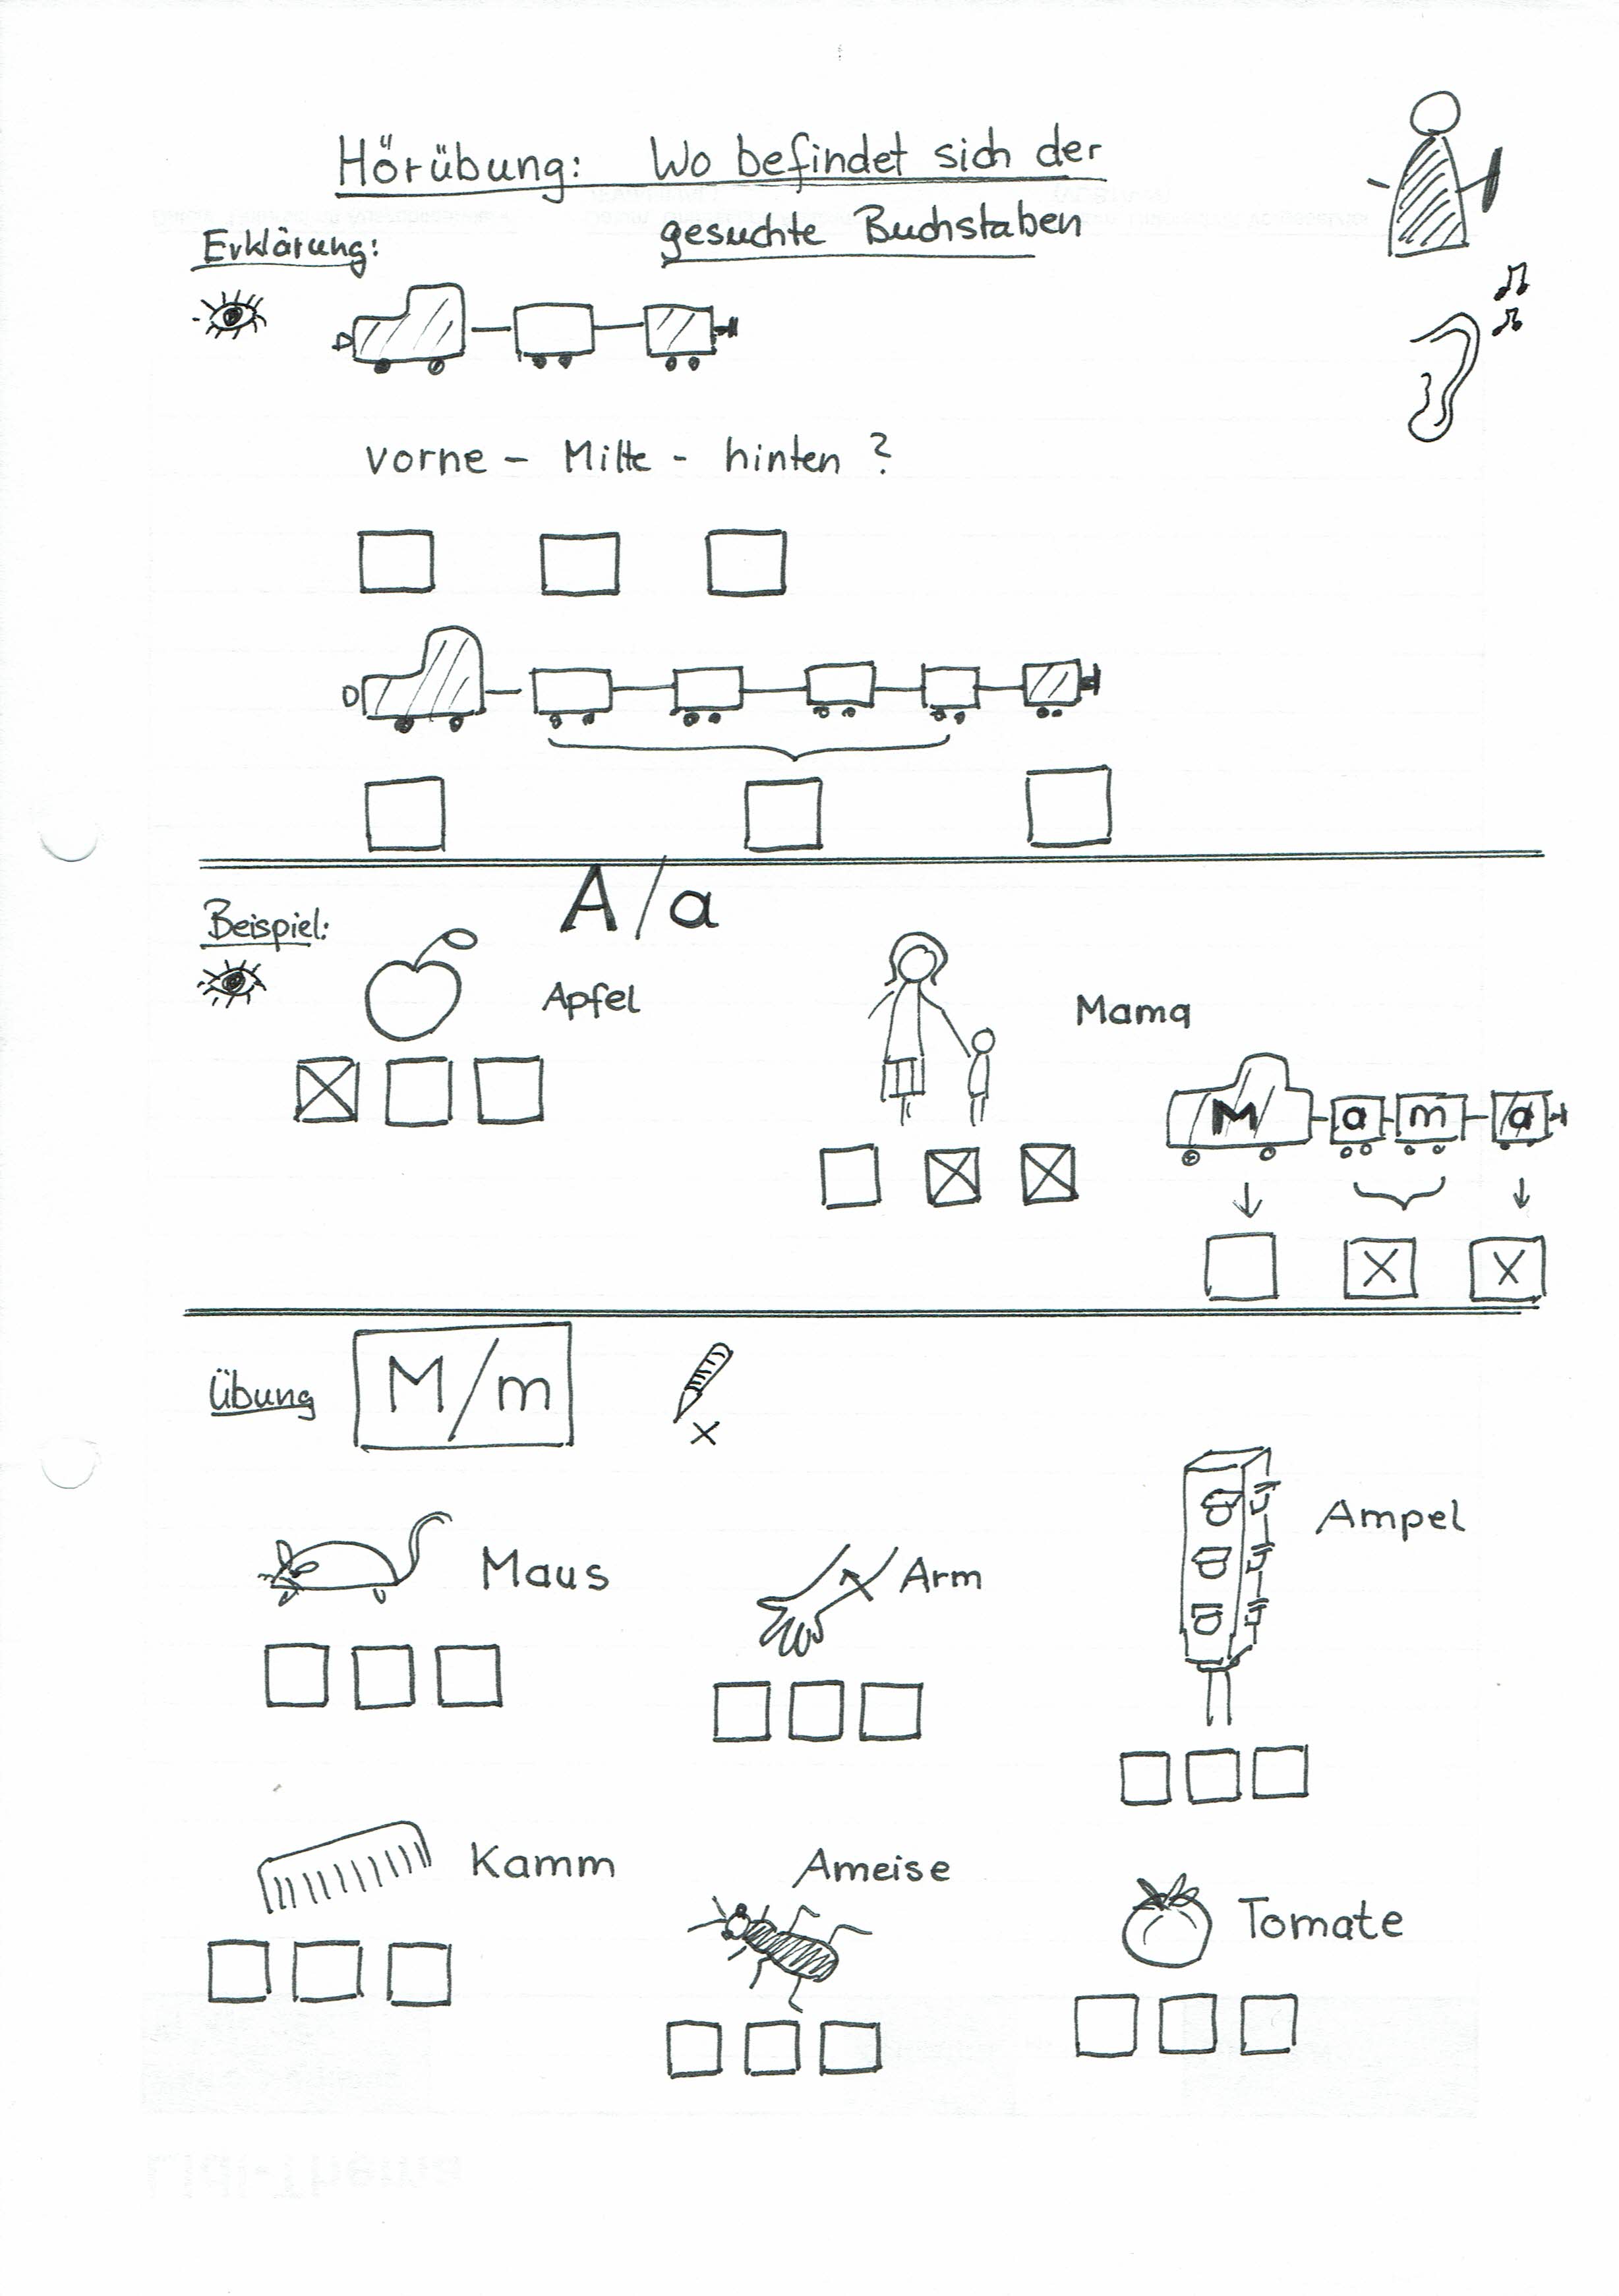 Hörübung: Wo befindet sich der
gesuchte Buchstaben
Erklärung:
vorne - Mitte - hinten ?
A/a
Beispiel:
Apfel
Mama
M a m a
Übung M/m
Maus
Arm
Ampel
Kamm
Ameise
Tomate